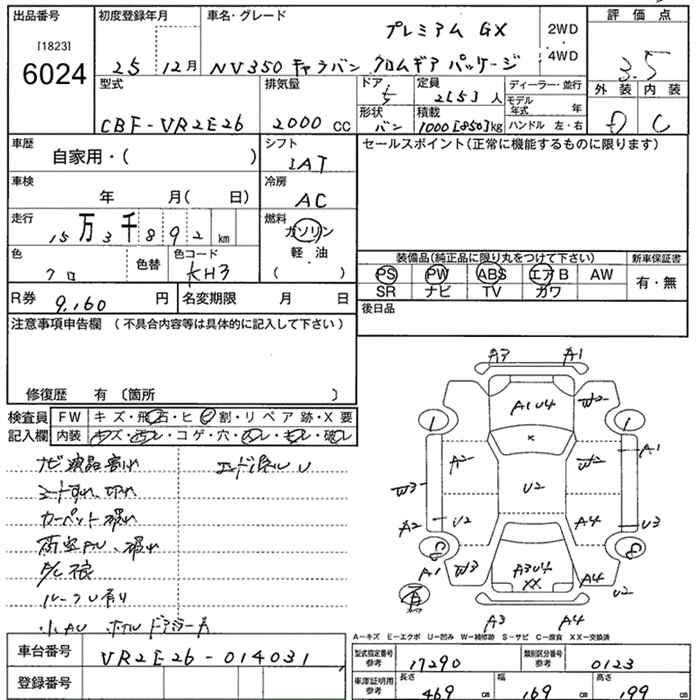 出品番号 初度登録年月 車名・グレード 評価点
[1823] プレミアム GX 2WD
6024 25 12月 NV350 キャラバン クロムギア パッケージ 4WD 3.5
型式 排気量 ドア 5 定員 2(5)人 ディーラー・並行 外装 内装
CBF-VR2E26 2000 cc 形状 バン 積載 1000[850]kg モデル年式 年 ハンドル 左・右 D C
車歴 自家用・( ) シフト IAT セールスポイント(正常に機能するものに限ります)
車検 年 月( 日) 冷房 AC
走行 15万3千892 km 燃料 ガソリン
軽・油
( )
色 クロ 色替 色コード KH3 装備品(純正品に限り丸をつけて下さい) 新車保証書
PS PW ABS エアB AW 有・無
SR ナビ TV カワ
R券 9,160 円 名変期限 月 日 後日品
注意事項申告欄 (不具合内容等は具体的に記入して下さい)
修復歴 有 〔箇所 〕
検査員記入欄 FW キズ・飛石・ヒビ割・リペア跡・X要
内装 キズ・汚レ・コゲ・穴・スレ・モレ・破レ
ナビ液晶割れ
シートすれ、切れ
カーペット破れ
ルーフU有り
A3 A1
A1U4
W2
1 1
A2 W2 A1
W3 U2
A2 U2 A4 U3
8 8
A1 W3 A3U4 XX A4 U2
A3 A4
A-キズ E-エクボ U-凹み W-補修跡 S-サビ C-腐食 XX-交換済
車台番号 VR2E26-014031
登録番号
型式指定番号 参考 17290 類別区分番号 参考 0123
車庫証明用 参考 長さ 469 cm 幅 169 cm 高さ 199 cm